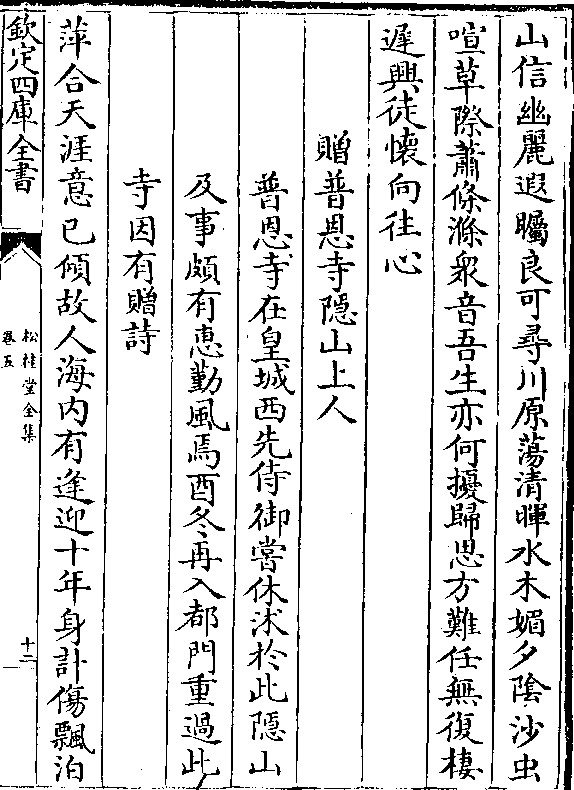 山信幽麗遐矚良可尋川原蕩清暉水木媚夕陰沙虫
喧草際蕭條滌衆音吾生亦何擾歸思方難任無復棲
遲興徒懷向往心
贈普恩寺隱山上人
普恩寺在皇城西先侍御嘗休沐於此隱山
及事頗有恵勤風焉酉冬再入都門重過此
寺因有贈詩
萍合天涯意已傾故人海内有逢迎十年身計傷飄泊
欽定四庫全書
松桂堂全集
卷五
十二